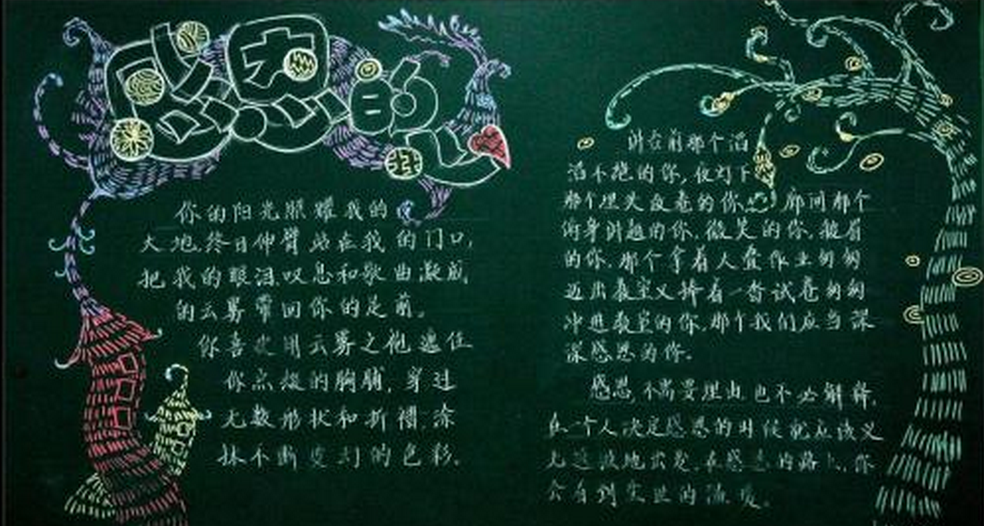 感恩的心
你的阳光照耀我的
大地,终日伸臂站在我的门口,
把我的眼泪,叹息和歌曲凝成
的云雾带回你的足前。
你喜爱用云雾之袍遮住
你点缀的胸脯,穿过
无数形状和折褶,涂
抹不断变幻的色彩。
讲台前那个滔
滔不绝的你,夜灯下
那个埋头夜卷的你,廊间那个
俯身讲题的你,微笑的你,皱眉
的你,那个拿着人叠作业匆匆
迈出教室又捧着一沓试卷匆匆
冲进教室的你,那个我们应当深
深感恩的你。
感恩,不需要理由,也不必解释,
一个人决定感恩的时候就应该义
无地出发,在感恩的路上,你
会有到的